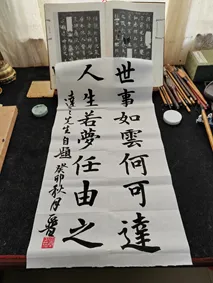 世事如雲何可達
人生若夢任由之
達之先生自題 癸卯秋月